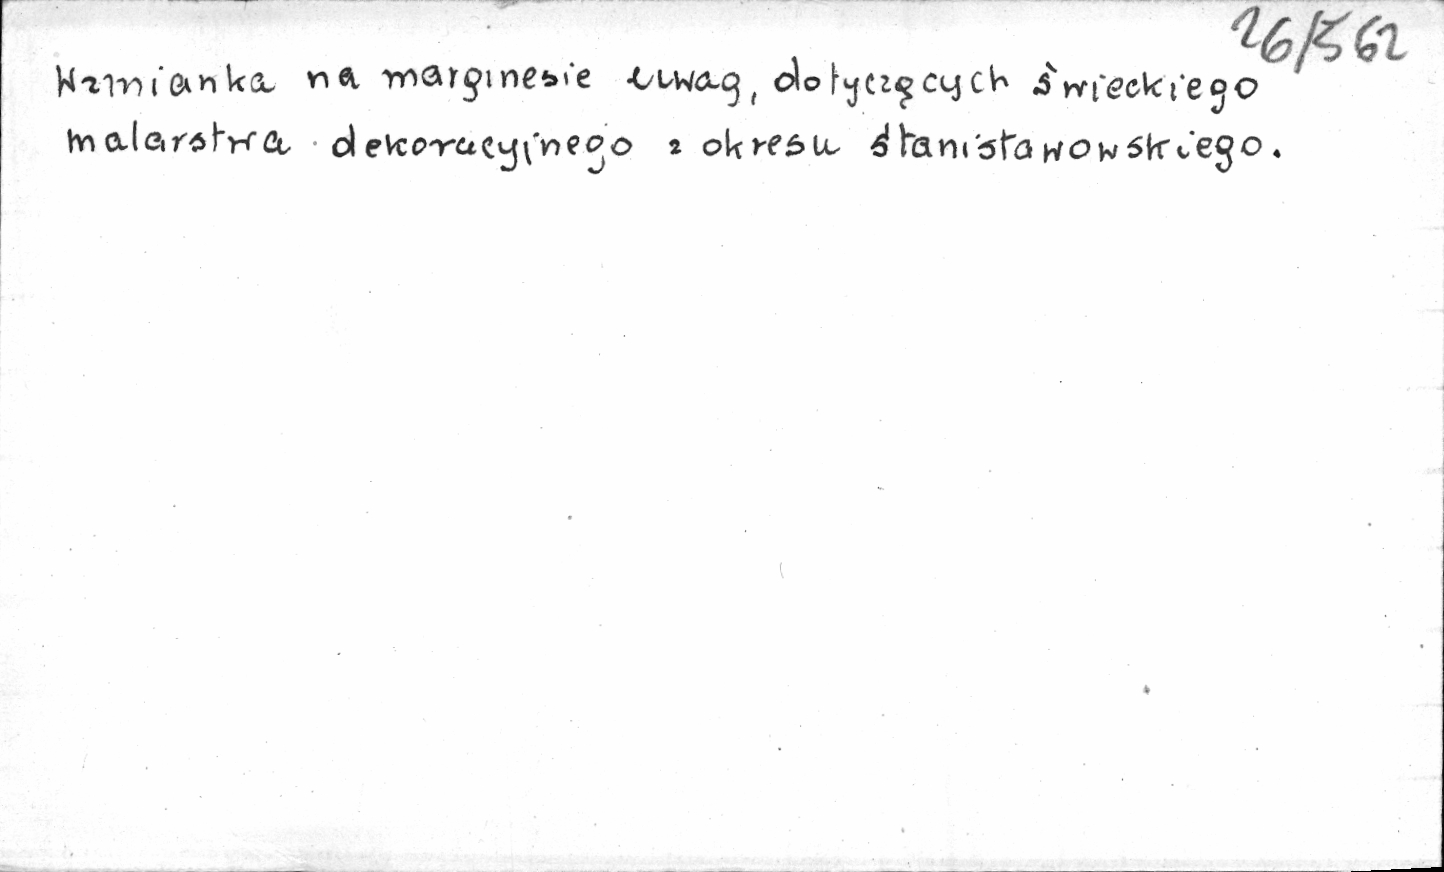 26/562
Wzmianka na marginesie uwag, dotyczących świeckiego
malarstwa dekoracyjnego z okresu stanisławowskiego.